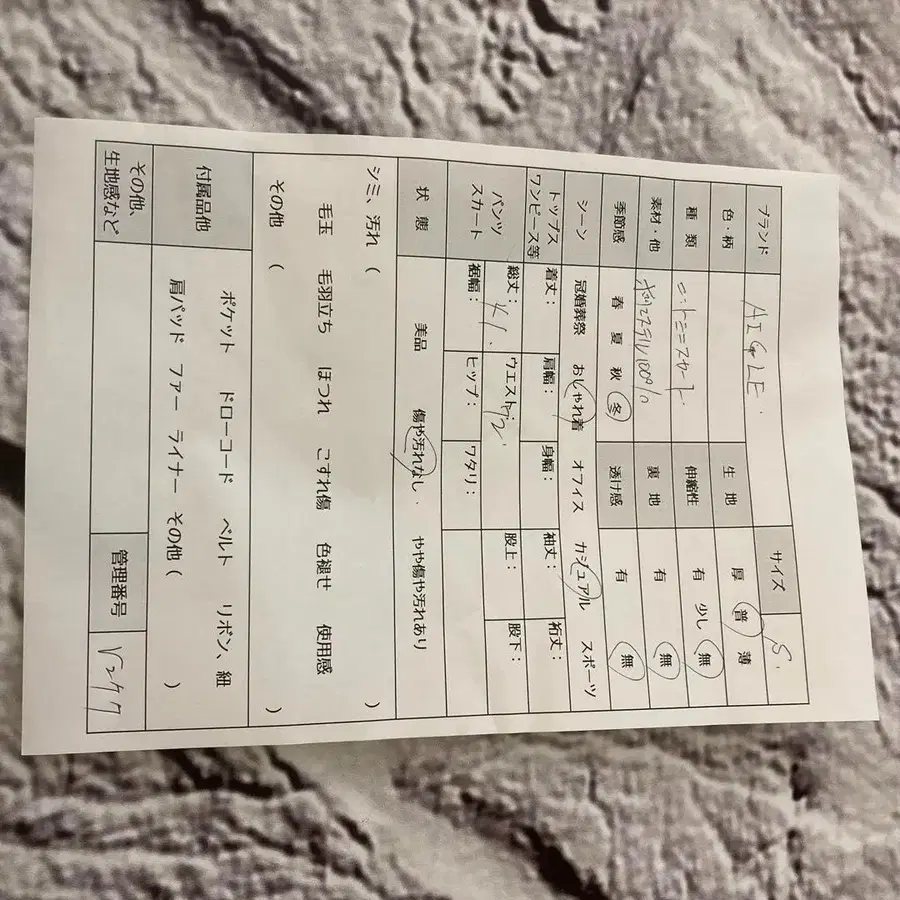 ブランド AIGLE. サイズ S.
色・柄 生地 厚 普 薄
種類 ニットミニスカート 伸縮性 有 少し 無
素材・他 ポリエステル100% 裏地 有 無
季節感 春 夏 秋 冬 透け感 有 無
シーン 冠婚葬祭 おしゃれ着 オフィス カジュアル スポーツ
トップス
ワンピース等 着丈: 肩幅: 身幅: 袖丈: 裄丈:
パンツ
スカート 総丈: 41. ウエスト: 股上: 股下:
裾幅: ヒップ: ワタリ:
状態 美品 傷や汚れなし. やや傷や汚れあり
シミ、汚れ ( )
毛玉 毛羽立ち ほつれ こすれ傷 色褪せ 使用感
その他 ( )
付属品他 ポケット ドローコード ベルト リボン、紐
肩パッド ファー ライナー その他 ( )
その他、
生地感など 管理番号